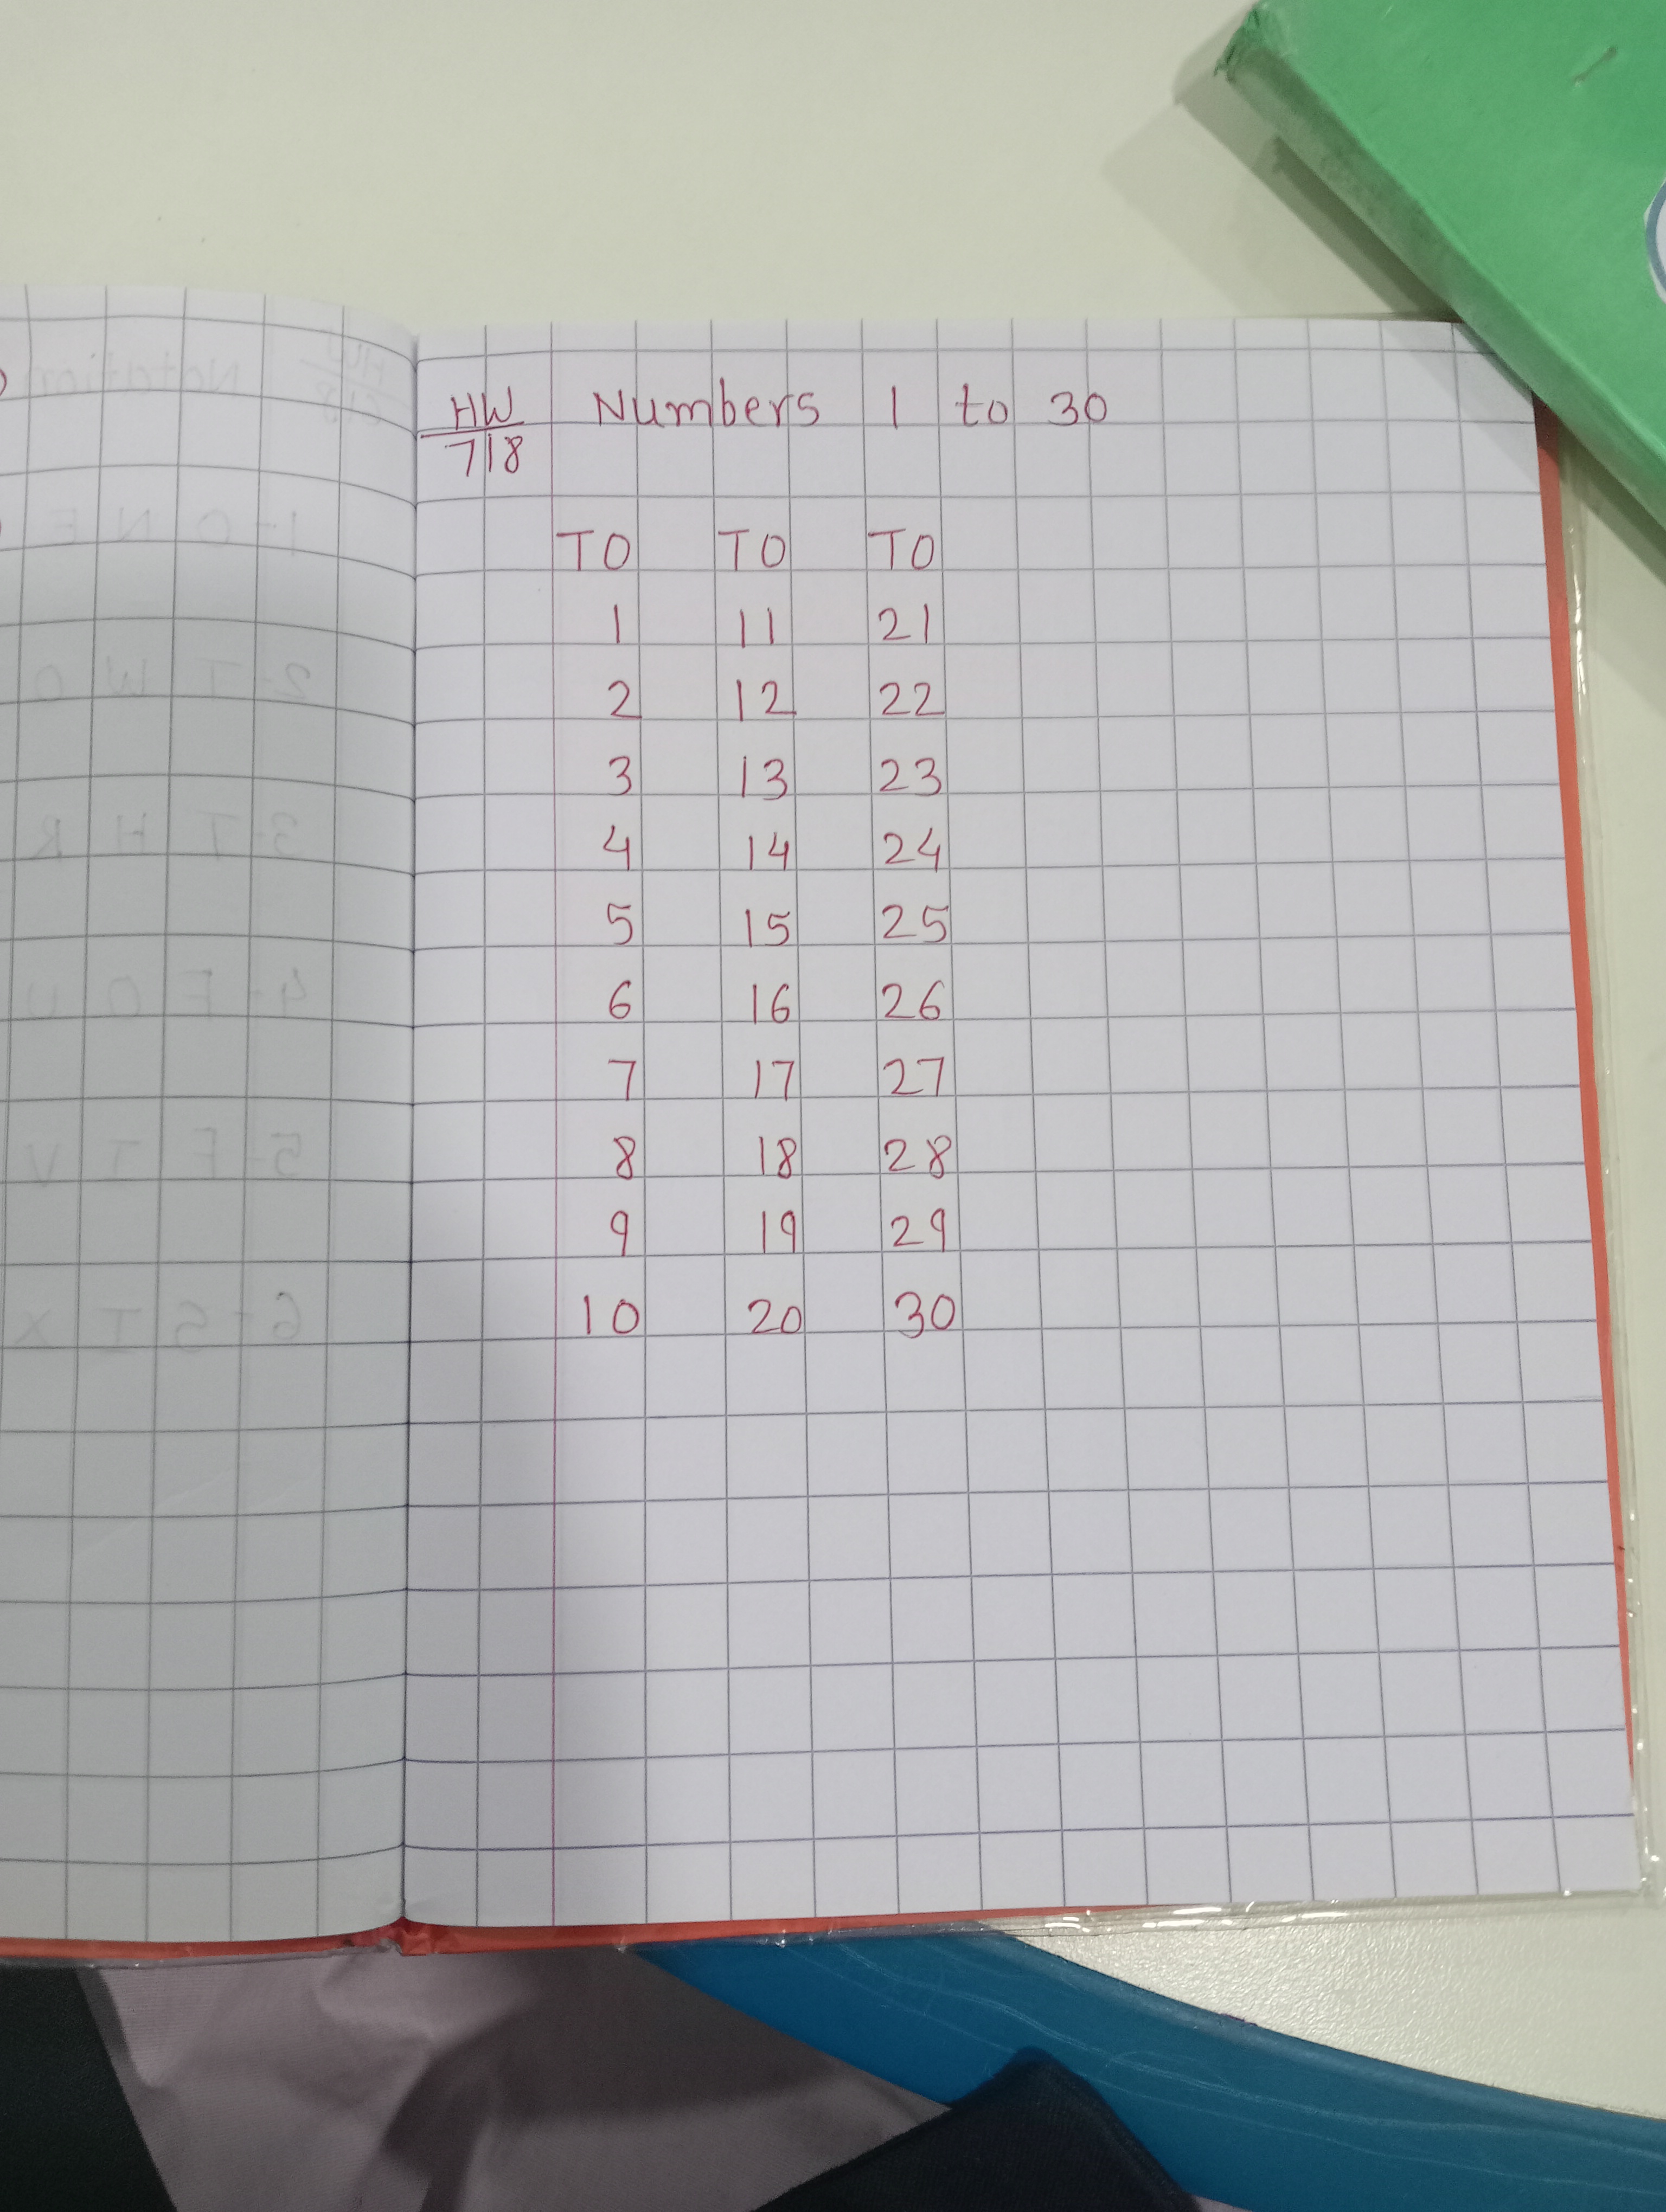 HW Numbers 1 to 30
7/8
TO TO TO
1 11 21
2 12 22
3 13 23
4 14 24
5 15 25
6 16 26
7 17 27
8 18 28
9 19 29
10 20 30